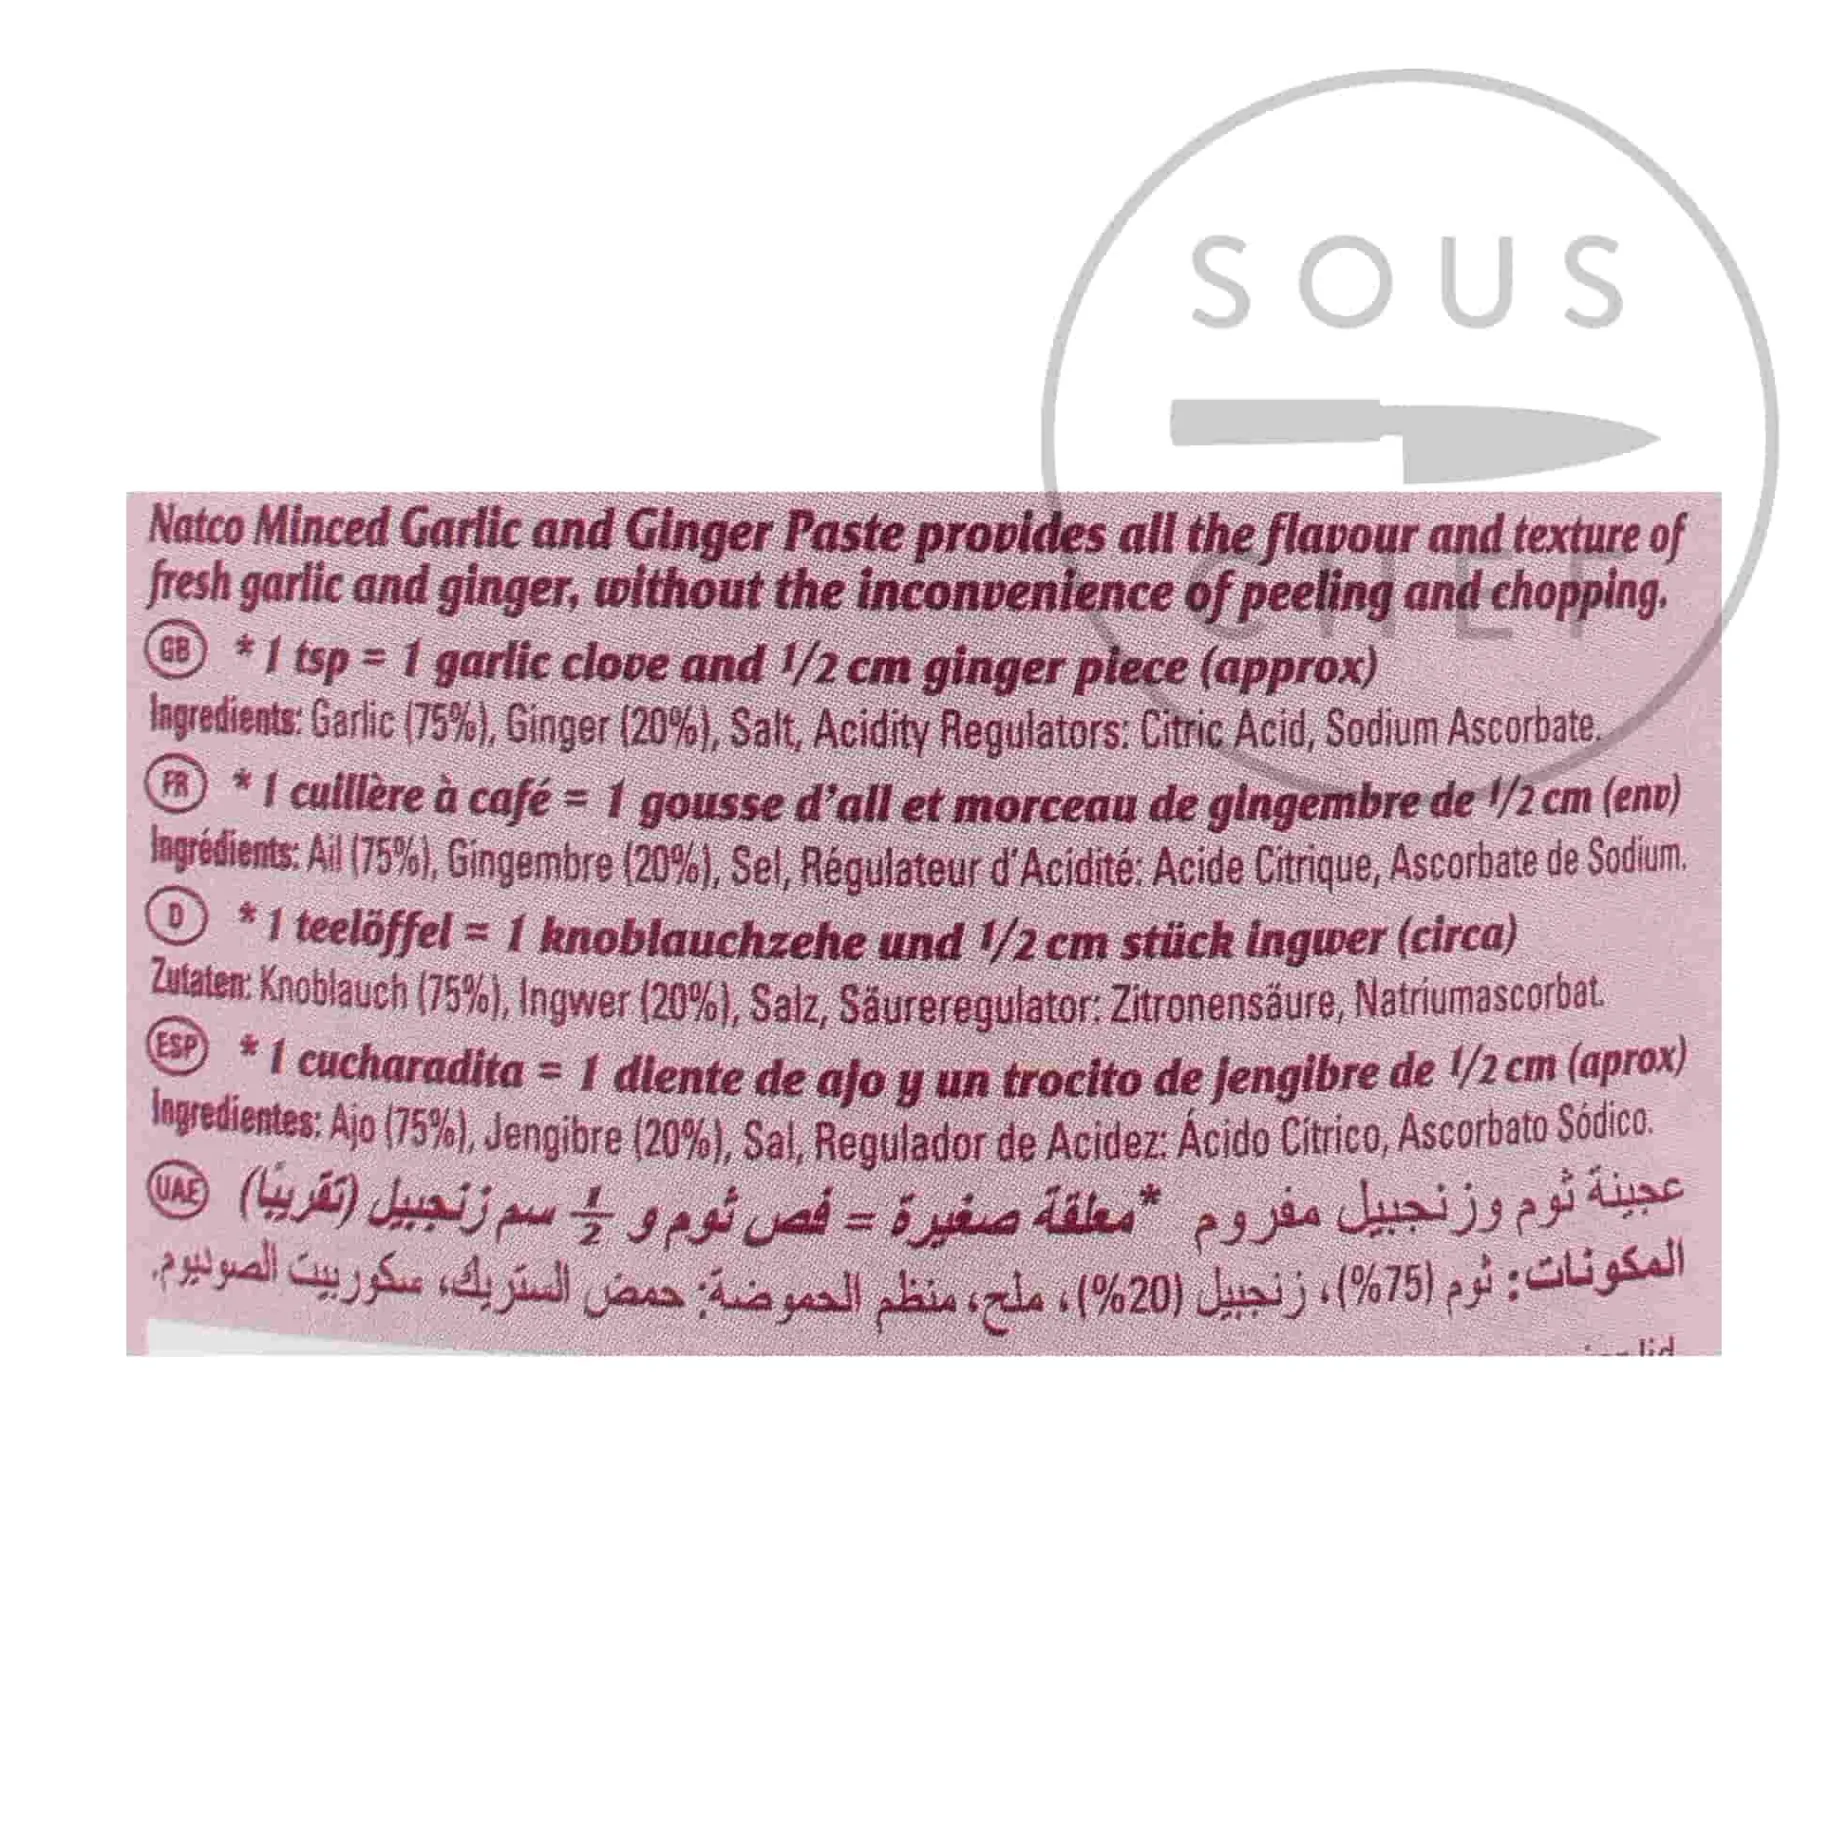 SOUS
CHEF
Natco Minced Garlic and Ginger Paste provides all the flavour and texture of
fresh garlic and ginger, without the inconvenience of peeling and chopping.
GB * 1 tsp = 1 garlic clove and 1/2 cm ginger piece (approx)
Ingredients: Garlic (75%), Ginger (20%), Salt, Acidity Regulators: Citric Acid, Sodium Ascorbate.
FR * 1 cuillère à café = 1 gousse d'ail et morceau de gingembre de 1/2 cm (env)
Ingrédients: Ail (75%), Gingembre (20%), Sel, Régulateur d'Acidité: Acide Citrique, Ascorbate de Sodium.
D * 1 teelöffel = 1 knoblauchzehe und 1/2 cm stück ingwer (circa)
Zutaten: Knoblauch (75%), Ingwer (20%), Salz, Säureregulator: Zitronensäure, Natriumascorbat.
ESP * 1 cucharadita = 1 diente de ajo y un trocito de jengibre de 1/2 cm (aprox)
Ingredientes: Ajo (75%), Jengibre (20%), Sal, Regulador de Acidez: Ácido Cítrico, Ascorbato Sódico.
UAE عجينة ثوم وزنجبيل مفروم *معلقة صغيرة = فص ثوم و 1/2 سم زنجبيل (تقريبًا)
المكونات: ثوم (75%)، زنجبيل (20%)، ملح، منظم الحموضة: حمض الستريك، سكوربيت الصوديوم.
lid